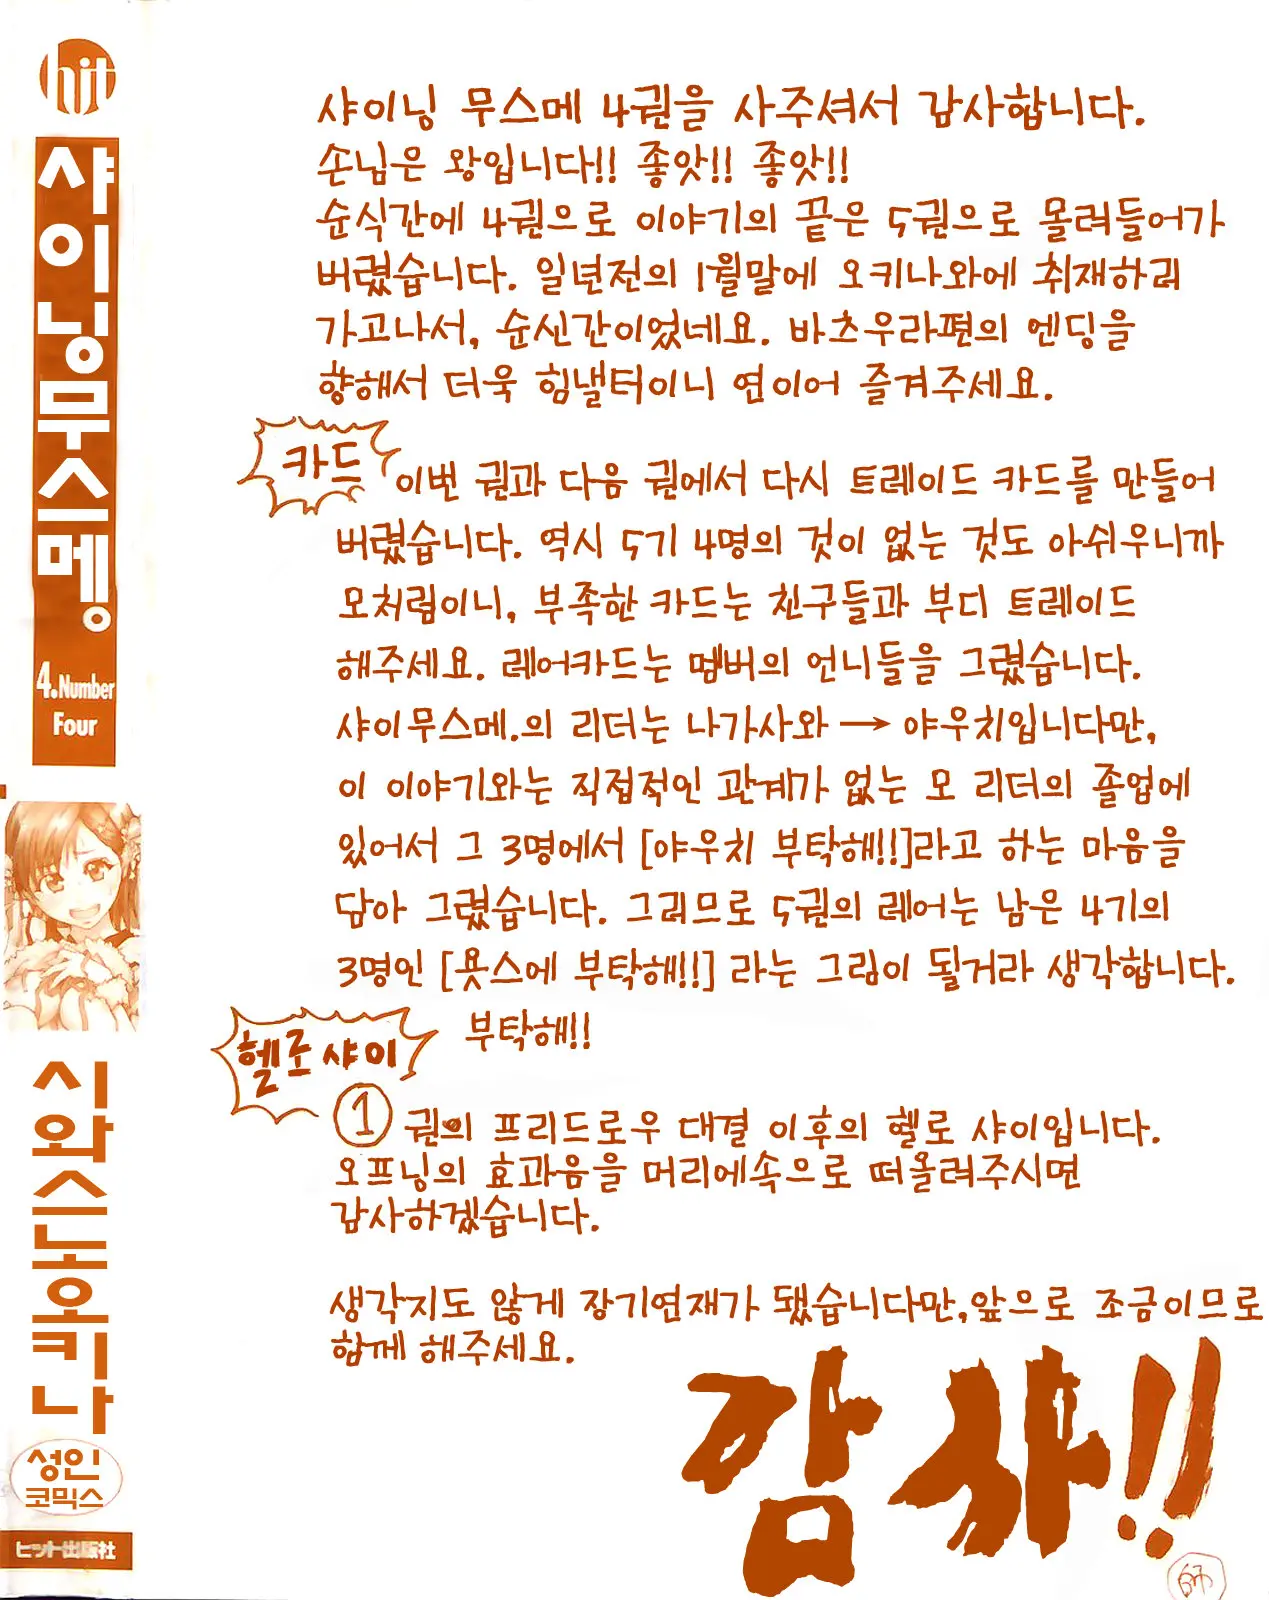 hit
샤이닝무스멩
4.Number
Four
시와스노오키나
성인
코믹스
ヒット出版社
샤이닝 무스메 4권을 사주셔서 감사합니다.
손님은 왕입니다!! 좋앗!! 좋앗!!
순식간에 4권으로 이야기의 끝은 5권으로 몰려들어가
버렸습니다. 일년전의 1월말에 오키나와에 취재하러
가고나서, 순신간이었네요. 바츠우라편의 엔딩을
향해서 더욱 힘낼터이니 연이어 즐겨주세요.
카드
이번 권과 다음 권에서 다시 트레이드 카드를 만들어
버렸습니다. 역시 5기 4명의 것이 없는 것도 아쉬우니까
모처럼이니, 부족한 카드는 친구들과 부디 트레이드
해주세요. 레어카드는 멤버의 언니들을 그렸습니다.
샤이무스메.의 리더는 나가사와 → 야우치입니다만,
이 이야기와는 직접적인 관계가 없는 모 리더의 졸업에
있어서 그 3명에서 [야우치 부탁해!!]라고 하는 마음을
담아 그렸습니다. 그러므로 5권의 레어는 남은 4기의
3명인 [욧스에 부탁해!!] 라는 그림이 될거라 생각합니다.
부탁해!!
헬로 샤이
1 권의 프리드로우 대결 이후의 헬로 샤이입니다.
오프닝의 효과음을 머리에속으로 떠올려주시면
감사하겠습니다.
생각지도 않게 장기연재가 됐습니다만,앞으로 조금이므로
함께 해주세요.
감사!!